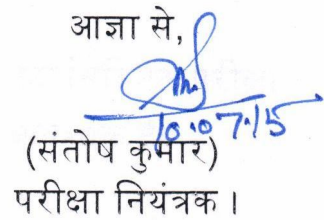 आज्ञा से,
10.07.15
(संतोष कुमार)
परीक्षा नियंत्रक ।